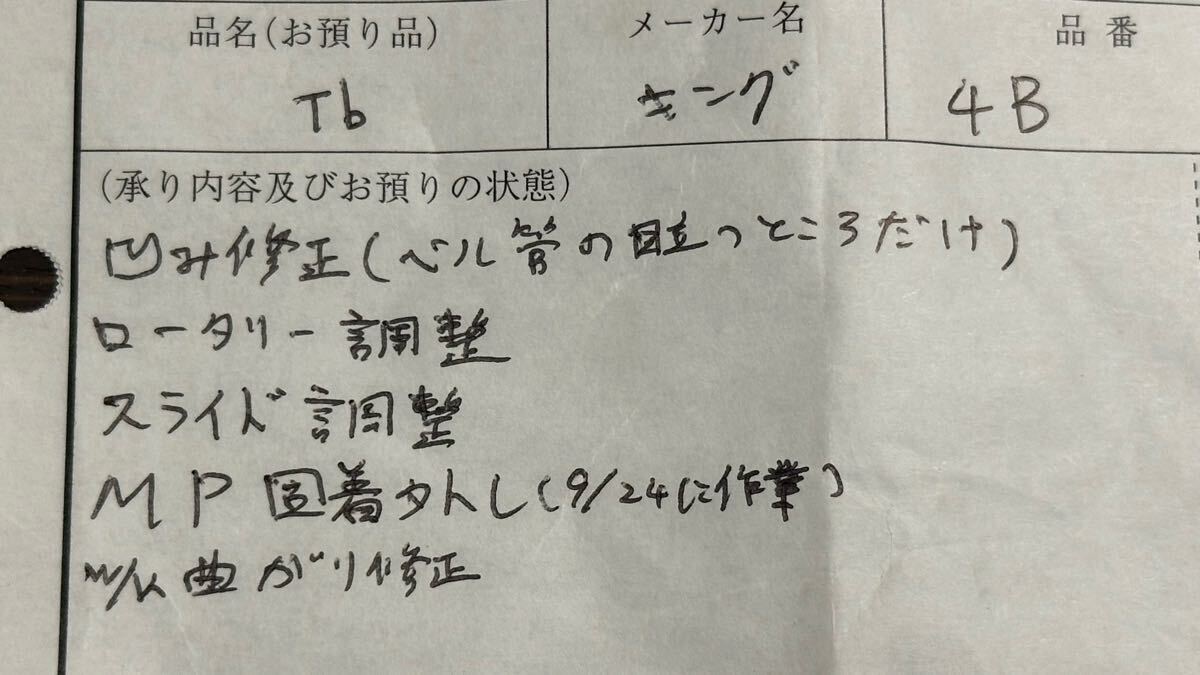 品名(お預り品) メーカー名 品番
Tb キング 4B
(承り内容及びお預りの状態)
凹み修正(ベル管の目立つところだけ)
ロータリー調整
スライド調整
MP固着外し(9/24に作業)
W/K曲がり修正